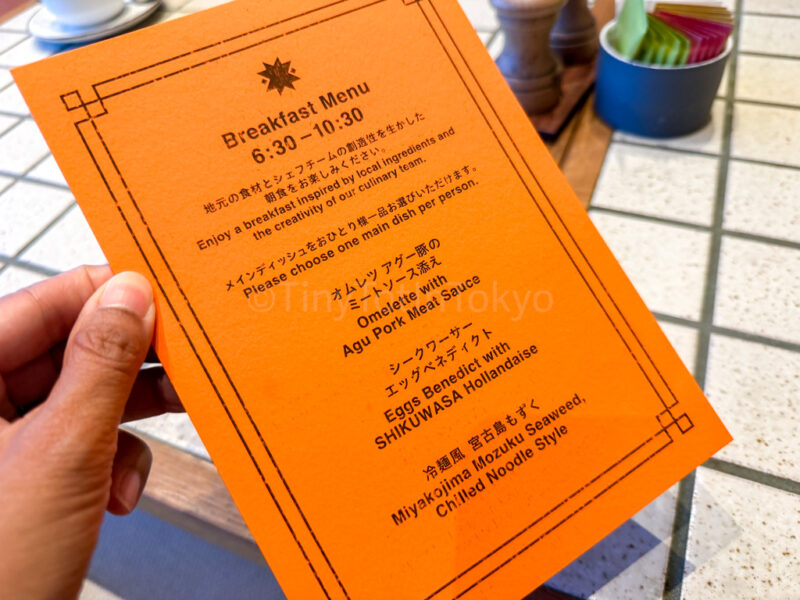 Breakfast Menu
6:30 – 10:30
地元の食材とシェフチームの創造性を生かした
朝食をお楽しみください。
Enjoy a breakfast inspired by local ingredients and
the creativity of our culinary team.
メインディッシュをおひとり様一品お選びいただけます。
Please choose one main dish per person.
オムレツ アグー豚の
ミートソース添え
Omelette with
Agu Pork Meat Sauce
シークワーサー
エッグベネディクト
Eggs Benedict with
SHIKUWASA Hollandaise
冷麺風 宮古島もずく
Miyakojima Mozuku Seaweed,
Chilled Noodle Style